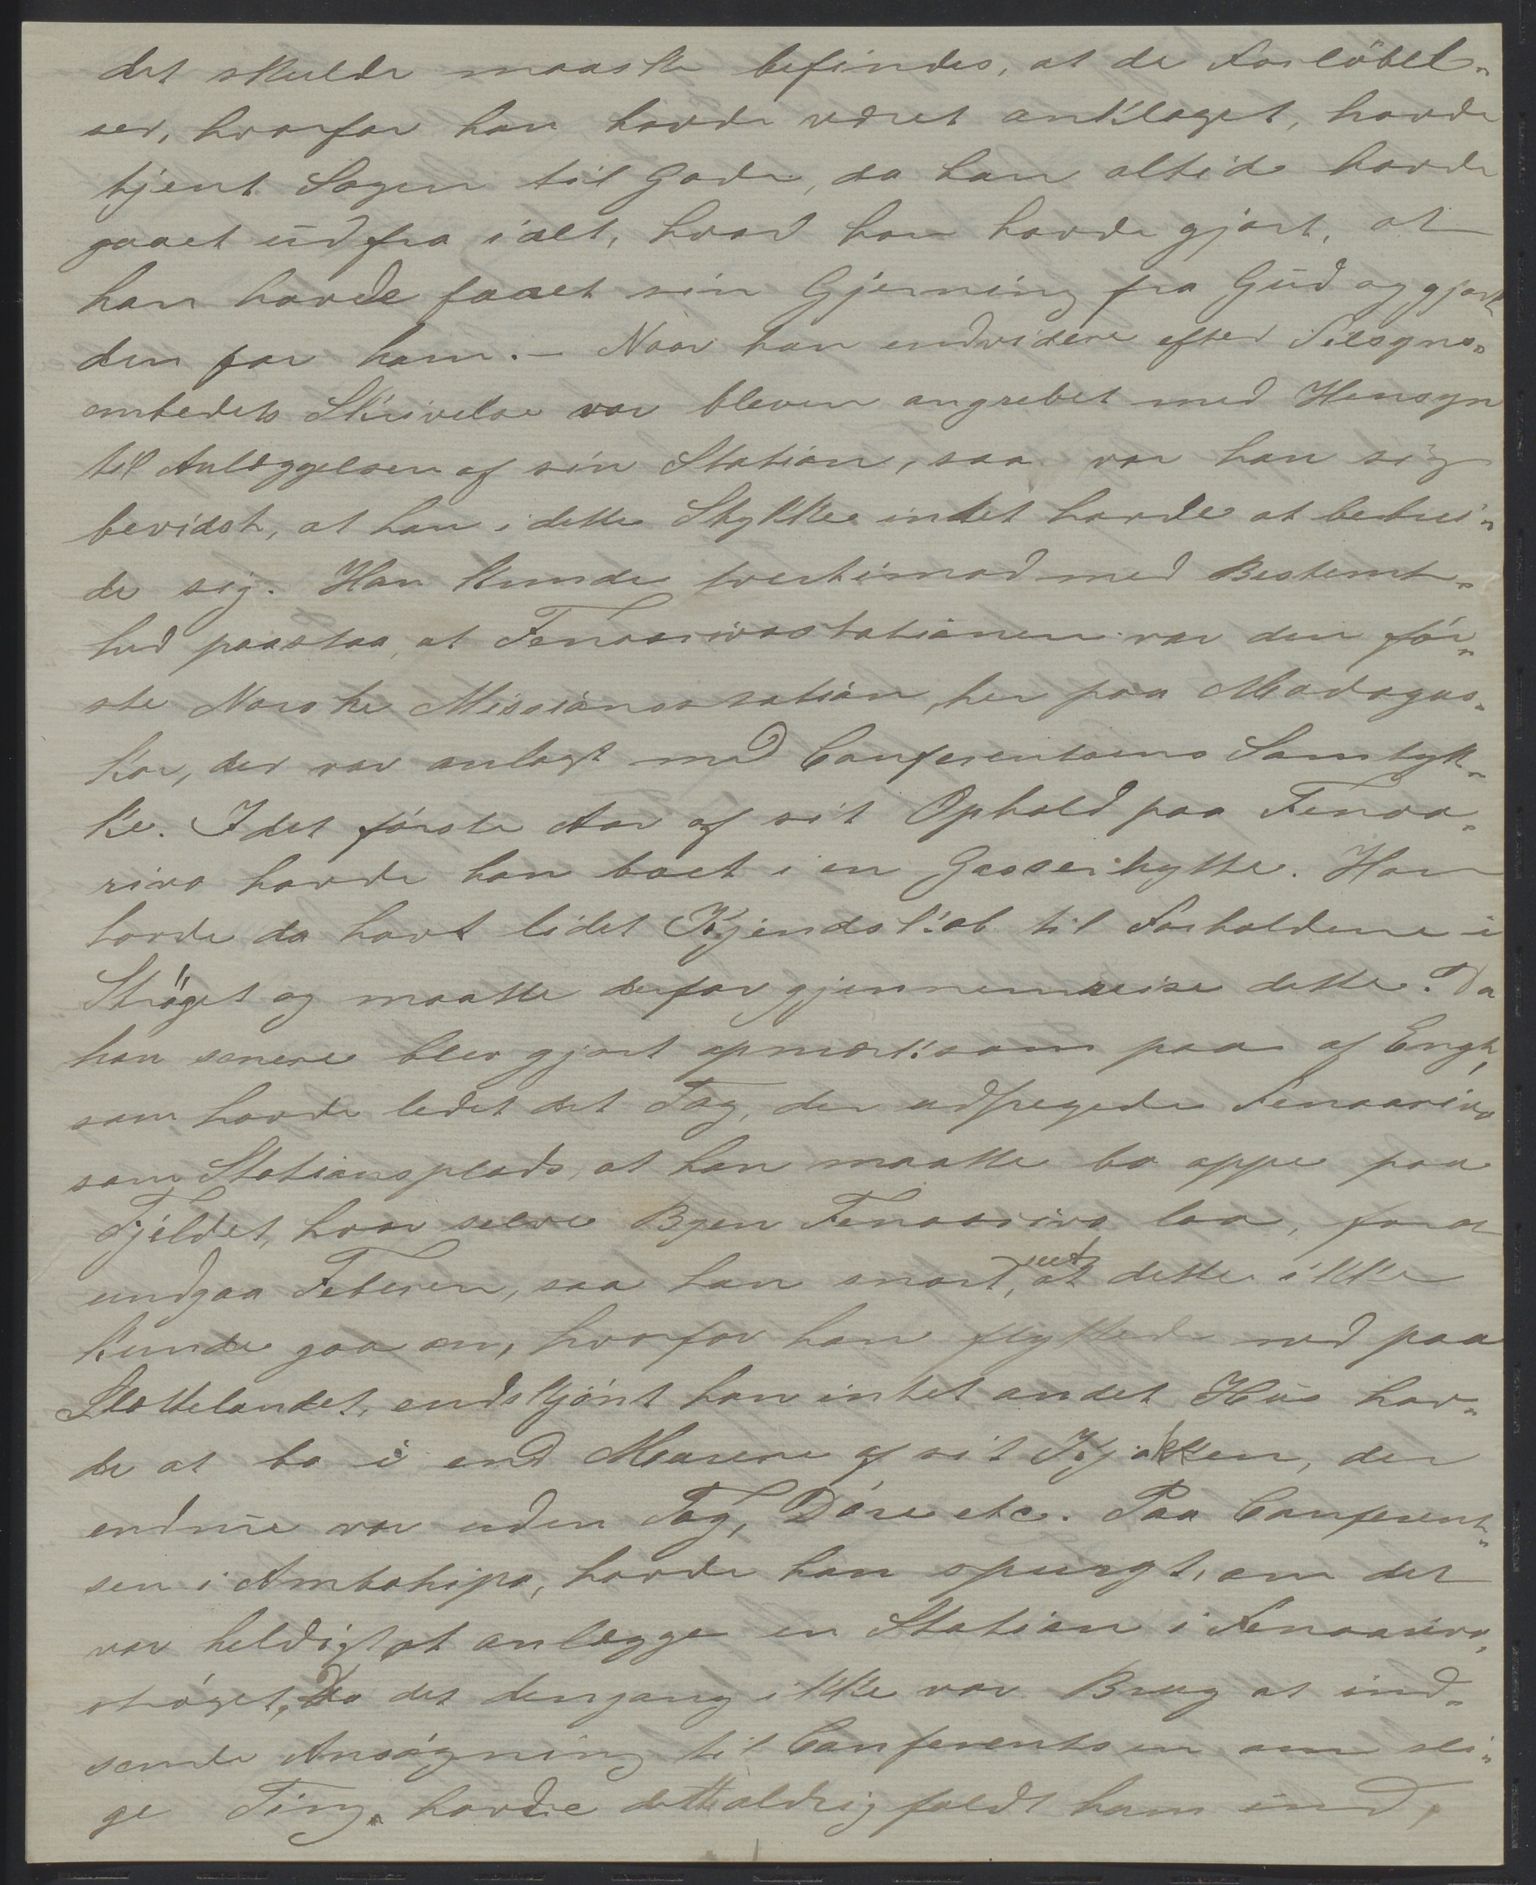 det skulde maaske befindes, at de Forløbel-
ser, hvorfor han havde været anklaget, havde
tjent Sagen til Gode, da han altid havde
gaaet ud fra i alt, hvad han havde gjort, at
han havde faaet sin Gjerning fra Gud og gjort
den for ham. – Naar han endvidere efter Tilsyns-
embedets Skrivelse var bleven angrebet med Hensyn
til Anlæggelsen af sin Station, saa var han sig
bevidst, at han i dette Stykke intet havde at bebrei-
de sig. Han kunde tvertimod med Bestemt-
hed paastaa, at Fenoarivostationen var den før-
ste Norske Missionsstation, her paa Madagas-
kar, der var anlagt med Conferentsens Samtyk-
ke. I det første Aar af sit Ophold paa Fenoa-
rivo havde han boet i en Gasserhytte. Han
havde da havt lidet Kjendskab til Forholdene i
Strøget og maatte derfor gjennemreise dette. Da
han senere blev gjort opmærksom paa af Engh,
som havde ledet det Tog, der udpegede Fenoarivo
som Stationsplads, at han maatte bo oppe paa
Fjeldet, hvor selve Byen Fenoarivo laa, for at
undgaa Feberen, saa han snart, at dette ikke
kunde gaa an, hvorfor han flyttede ned paa
Slettelandet, endskjønt han intet andet Hus hav-
de at bo i end Murene af sit Kjøkken, der
endnu var uden Tag, Døre etc. Paa Conferent-
sen i Ambohipo, havde han spurgt, om det
var heldigt at anlægge en Station i Fenoarivo-
strøget, Da det dengang ikke var Brug at ind-
sende Ansøgning til Conferentsen om sli-
ge Ting, havde dette aldrig faldt ham ind,